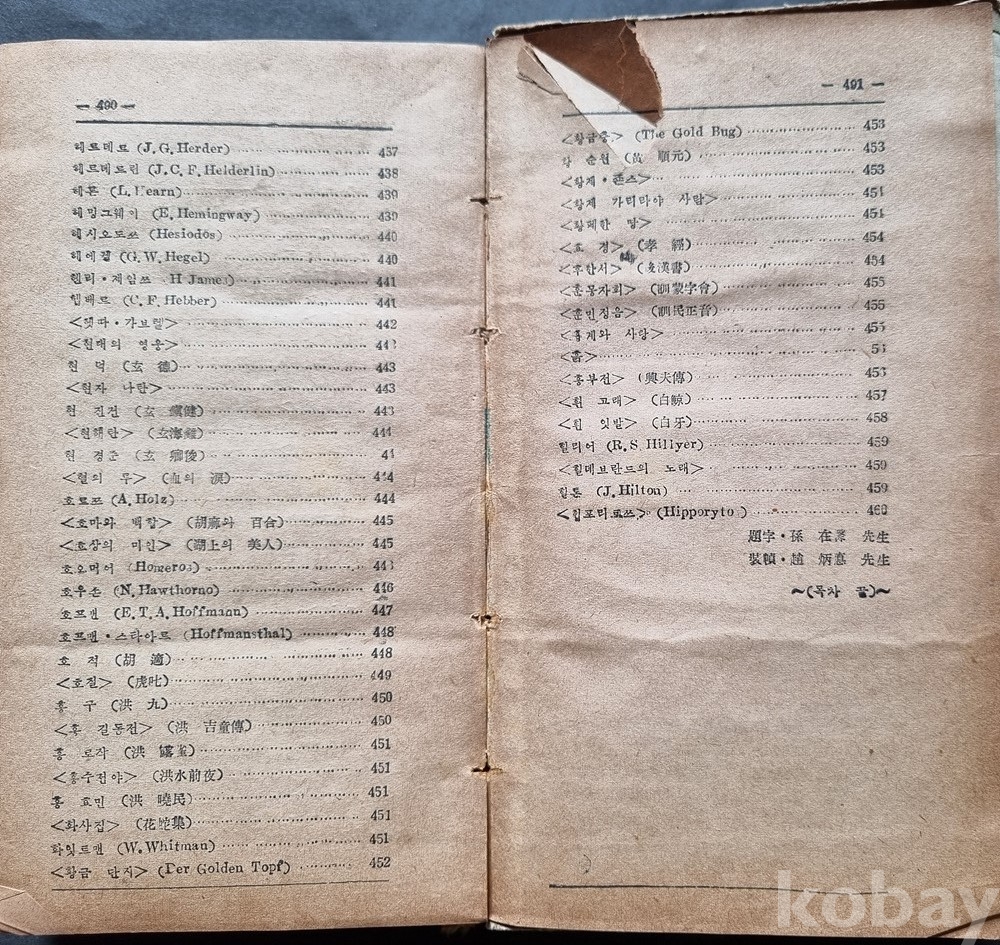 — 490 —
헤르데르 (J. G. Herder) 437
헤르데르린 (J. C. F. Helderlin) 438
헤른 (L. Hearn) 439
헤밍그웨이 (E. Hemingway) 439
헤시오도쓰 (Hesiodos) 440
헤에겔 (G. W. Hegel) 440
헨리・제임쓰 (H James) 441
헵베르 (C. F. Hebber) 441
<헷따・가브렐> 442
<현대의 영웅>
현 덕 (玄 德) 443
<현자 나탄> 443
현 진건 (玄 鎭健) 443
<현해탄> (玄海灘) 444
현 경준 (玄 卿俊) 4
<혈의 루> (血의 淚) 444
호르쯔 (A. Holz) 444
<호마와 백합> (胡麻와 百合) 445
<호상의 미인> (湖上의 美人) 445
호오머어 (Homeros)
호우손 (N. Hawthorno) 446
호프맨 (E. T. A. Hoffmann) 447
호프맨・스타아르 (Hoffmansthal) 448
호 적 (胡 適) 448
<호질> (虎叱) 449
홍 구 (洪 九) 450
<홍 길동전> (洪 吉童傳) 450
홍 로작 (洪 露雀) 451
<홍수전야> (洪水前夜) 451
홍 효민 (洪 曉民) 451
<화사집> (花蛇集) 451
화잇트맨 (W. Whitman) 451
<황금 단지> (Der Golden Topf) 452
— 491 —
<황금충> (The Gold Bug) 453
황 순원 (黃 順元) 453
<황제・죤스> 453
<황제 가리라야 사람> 454
<황폐한 땅> 454
<효 경> (孝 經) 454
<후한서> (後漢書) 454
<훈몽자회> (訓蒙字會) 455
<훈민정음> (訓民正音) 455
<흉계와 사랑> 455
<흙>
<흥부전> (興夫傳) 456
<흰 고래> (白鯨) 457
<흰 잇발> (白牙) 458
힐리어 (R. S. Hillyer) 459
<힐데브란드의 노래> 459
힐톤 (J. Hilton) 459
<힙포리토쓰> (Hipporyto ) 460
題字・孫 在馨 先生
裝幀・趙 炳悳 先生
~(목차 끝)~
kobay